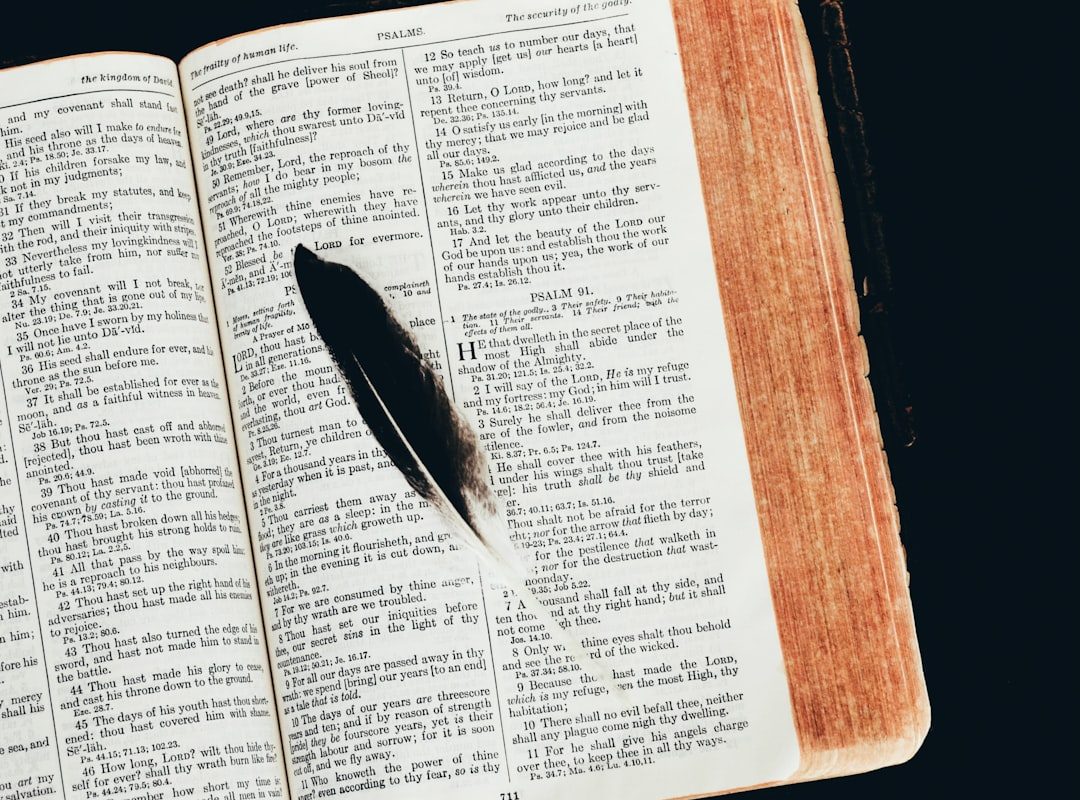 the kingdom of David
with
estab-
him;
his
mercy
shall his
sea, and
art my
salvation.
and my covenant shall stand fast
him.
His seed also will I make to endure for
and his throne as the days of heaven.
2.4; Ps. 18.50; Je. 33.17.
If his children forsake my law, and
not in my judgments;
Sa. 7.14.
31 If they break my statutes, and keep
my commandments;
32 Then will I visit their transgression
with the rod, and their iniquity with stripes.
33 Nevertheless my lovingkindness will I
not utterly take from him, nor suffer my
faithfulness to fail.
2 Sa. 7.15.
34 My covenant will I not break, nor
alter the thing that is gone out of my lips.
Nu. 23.19; De. 7.9; Je. 33.20,21.
35 Once have I sworn by my holiness that
I will not lie unto Dā′-vĭd.
Ps. 60.6; Am. 4.2.
36 His seed shall endure for ever, and his
throne as the sun before me.
Ver. 29; Ps. 72.5.
37 It shall be established for ever as the
moon, and as a faithful witness in heaven.
Sē′-läh.
Job 16.19; Ps. 72.5.
38 But thou hast cast off and abhorred
[rejected], thou hast been wroth with thine
anointed.
Ps. 20.6; 44.9.
39 Thou hast made void [abhorred] the
covenant of thy servant: thou hast profaned
his crown by casting it to the ground.
Ps. 74.7; 78.59; La. 5.16.
40 Thou hast broken down all his hedges;
thou hast brought his strong holds to ruin.
Ps. 80.12; La. 2.2,5.
41 All that pass by the way spoil him:
he is a reproach to his neighbours.
Ps. 44.13; 79.4; 80.12.
42 Thou hast set up the right hand of his
adversaries; thou hast made all his enemies
to rejoice.
Ps. 13.2; 80.6.
43 Thou hast also turned the edge of his
sword, and hast not made him to stand in
the battle.
44 Thou hast made his glory to cease,
and cast his throne down to the ground.
Eze. 28.7.
45 The days of his youth hast thou short-
ened: thou hast covered him with shame.
Sē′-läh.
Ps. 44.15; 71.13; 102.23.
46 How long, LORD? wilt thou hide thy-
self for ever? shall thy wrath burn like fire?
Ps. 44.24; 79.5; 80.4.
Remember how short my time is:
made all men in vain?
The frailty of human life.
PSALMS.
The security of the godly.
not see death? shall he deliver his soul from
the hand of the grave [power of Sheol]?
Sē′-läh.
Ps. 22.29; 49.9,15.
49 Lord, where are thy former loving-
kindnesses, which thou swarest unto Dā′-vĭd
in thy truth [faithfulness]?
Je. 30.9; Eze. 34.23.
50 Remember, Lord, the reproach of thy
servants; how I do bear in my bosom the
reproach of all the mighty people;
Ps. 69.9; 74.18,22.
51 Wherewith thine enemies have re-
proached, O LORD; wherewith they have
reproached the footsteps of thine anointed.
Ver. 38; Ps. 74.10.
52 Blessed be LORD for evermore.
Ā′-mĕn, and Ā′-m
Ps. 41.13; 72.19; 106
PS
1 Moses, setting forth complaineth
of human fragility, 10 and
brevity of life.
A Prayer of Mo
LORD, thou hast b place
in all generations.
De. 33.27; Eze. 11.16.
2 Before the moun ght
forth, or ever thou had
and the world, even fr
everlasting, thou art God.
Ps. 8.25,26.
3 Thou turnest man to d
sayest, Return, ye children o
De. 3.19; Ec. 12.7.
4 For a thousand years in thy
as yesterday when it is past, and
in the night.
5 Thou carriest them away as
flood; they are as a sleep: in the m
they are like grass which groweth up.
Ps. 73.20; 103.15; Is. 40.6.
6 In the morning it flourisheth, and gr
eth up; in the evening it is cut down, a
withereth.
Job 14.2; Ps. 92.7.
7 For we are consumed by thine anger,
and by thy wrath are we troubled.
8 Thou hast set our iniquities before
thee, our secret sins in the light of thy
countenance.
Ps. 19.12; 50.21; Je. 16.17.
9 For all our days are passed away in thy
wrath: we spend [bring] our years [to an end]
as a tale that is told.
10 The days of our years are threescore
years and ten; and if by reason of strength
[pride] they be fourscore years, yet is their
strength labour and sorrow; for it is soon
cut off, and we fly away.
11 Who knoweth the power of thine
anger? even according to thy fear, so is thy
12 So teach us to number our days, that
we may apply [get us] our hearts [a heart]
unto [of] wisdom.
Ps. 39.4.
13 Return, O LORD, how long? and let it
repent thee concerning thy servants.
De. 32.36; Ps. 135.14.
14 O satisfy us early [in the morning] with
thy mercy; that we may rejoice and be glad
all our days.
Ps. 85.6; 149.2.
15 Make us glad according to the days
wherein thou hast afflicted us, and the years
wherein we have seen evil.
16 Let thy work appear unto thy serv-
ants, and thy glory unto their children.
Hab. 3.2.
17 And let the beauty of the LORD our
God be upon us: and establish thou the work
of our hands upon us; yea, the work of our
hands establish thou it.
Ps. 27.4; Is. 26.12.
PSALM 91.
1 The state of the godly. 3 Their safety. 9 Their habita-
tion. 11 Their servants. 14 Their friend; with the
effects of them all.
HE that dwelleth in the secret place of the
most High shall abide under the
shadow of the Almighty.
Ps. 31.20; 121.5; Is. 25.4; 32.2.
2 I will say of the LORD, He is my refuge
and my fortress: my God; in him will I trust.
Ps. 14.6; 18.2; 56.4; Je. 16.19.
3 Surely he shall deliver thee from the
are of the fowler, and from the noisome
stilence.
8.37; Pr. 6.5; Ps. 124.7.
He shall cover thee with his feathers,
under his wings shalt thou trust [take
ge]: his truth shall be thy shield and
er.
36.7; 40.11; 63.7; Is. 51.16.
Thou shalt not be afraid for the terror
ght; nor for the arrow that flieth by day;
19-23; Ps. 23.4; 27.1; 64.4.
for the pestilence that walketh in
; nor for the destruction that wast-
noonday.
9.35; Job 5.22.
7 A thousand shall fall at thy side, and
ten thou nd at thy right hand; but it shall
not come gh thee.
Jos. 14.10.
8 Only wi thine eyes shalt thou behold
and see the re rd of the wicked.
Ps. 37.34; 58.10.
9 Because thou hast made the LORD,
which is my refuge, even the most High, thy
habitation;
10 There shall no evil befall thee, neither
shall any plague come nigh thy dwelling.
11 For he shall give his angels charge
over thee, to keep thee in all thy ways.
Ps. 34.7; Ma. 4.6; Lu. 4.10,11.
711